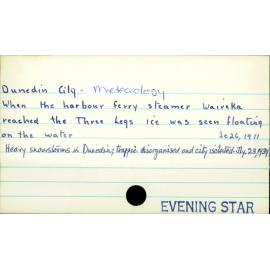 Dunedin City - Meteorology
When the harbour ferry steamer Waireka
reached the Three Legs ice was seen floating
on the water Je 26, 1911
Heavy snowstorms in Dunedin; traffic disorganised and city isolated. Jly. 29, 1939
EVENING STAR